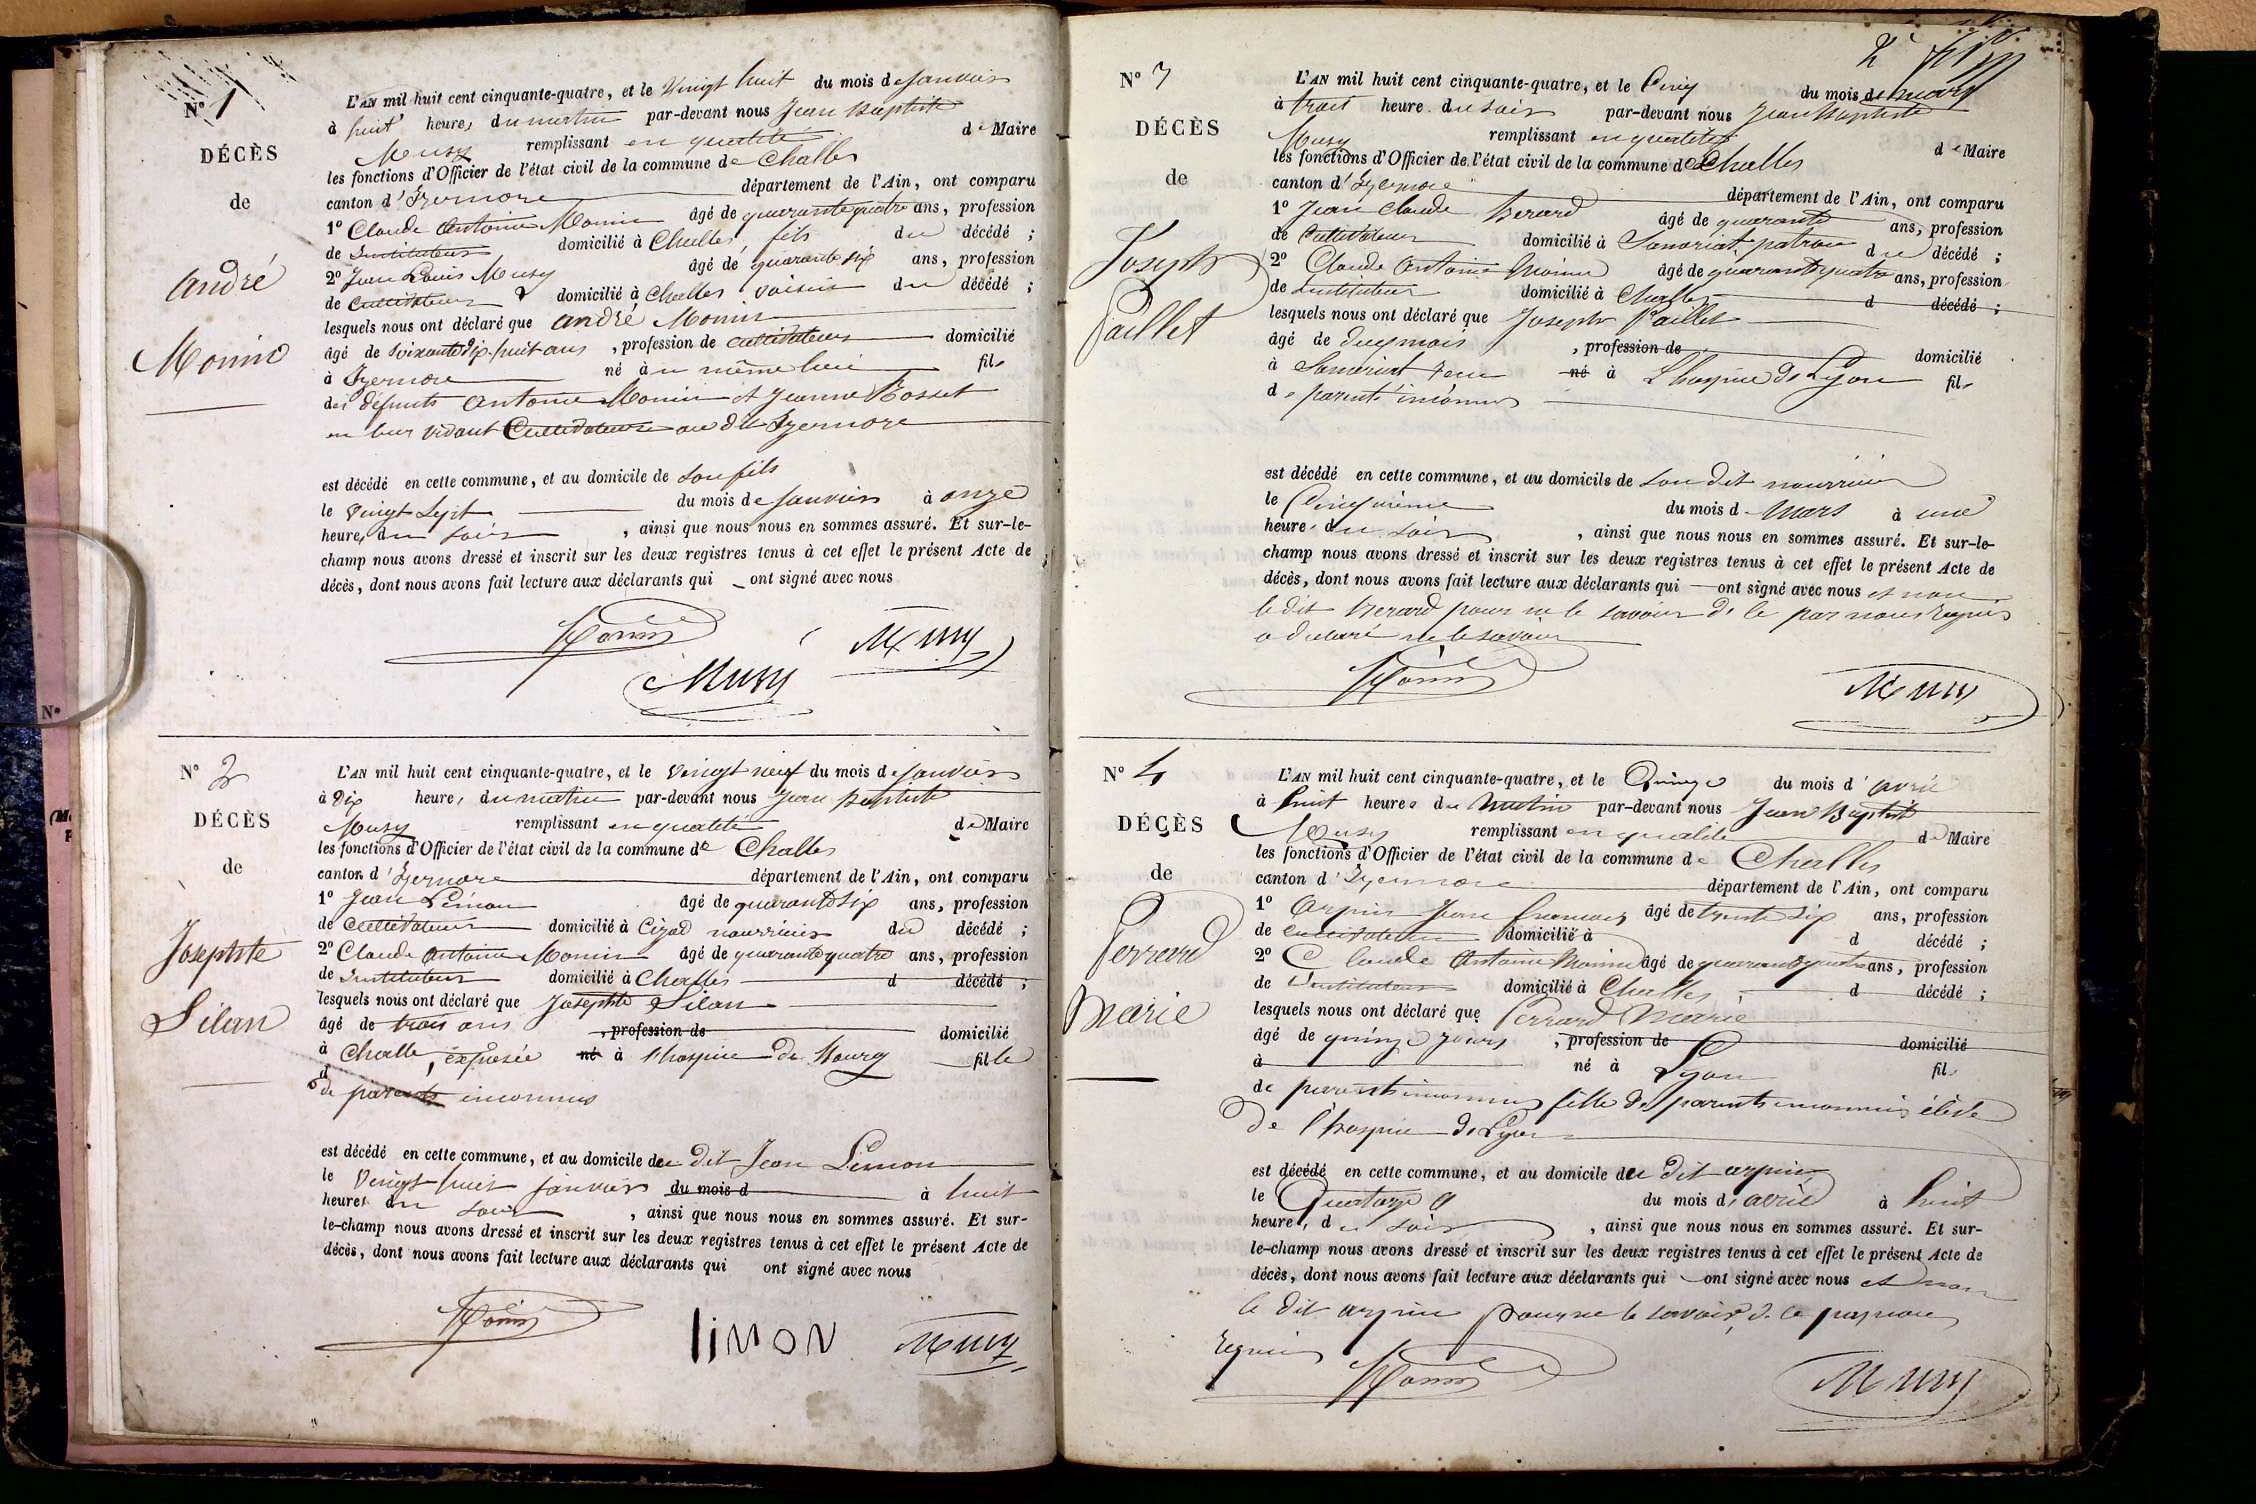 N° 1
DÉCÈS
de
André
Monin
L'AN mil huit cent cinquante-quatre, et le vingt huit du mois de janvier
à huit heures du matin par-devant nous Jean Baptiste
Musy remplissant en qualité de Maire
les fonctions d'Officier de l'état civil de la commune de Challes
canton d'Izernore département de l'Ain, ont comparu
1° Claude Antoine Monin âgé de quarante quatre ans, profession
de Instituteur domicilié à Challes, fils du décédé ;
2° Jean Louis Musy âgé de quarante six ans, profession
de Cultivateur domicilié à Challes voisin du décédé ;
lesquels nous ont déclaré que André Monin
âgé de soixante dix huit ans, profession de cultivateur domicilié
à Izernore né au même lieu fils
des défunts Antoine Monin et Jeanne Bosset
en leur vivant Cultivateurs au dit Izernore
est décédé en cette commune, et au domicile de son fils
le vingt sept du mois de janvier à onze
heures du soir, ainsi que nous nous en sommes assuré. Et sur-le-
champ nous avons dressé et inscrit sur les deux registres tenus à cet effet le présent Acte de
décès, dont nous avons fait lecture aux déclarants qui ont signé avec nous
Monin
Musy
Musy
N° 2
DÉCÈS
de
Josephte
Silan
L'AN mil huit cent cinquante-quatre, et le vingt neuf du mois de janvier
à dix heures du matin par-devant nous Jean Baptiste
Musy remplissant en qualité de Maire
les fonctions d'Officier de l'état civil de la commune de Challes
canton d'Izernore département de l'Ain, ont comparu
1° Jean Limon âgé de quarante six ans, profession
de cultivateur domicilié à Cizod nourricier du décédé ;
2° Claude Antoine Monin âgé de quarante quatre ans, profession
de Instituteur domicilié à Challes d décédé ;
lesquels nous ont déclaré que Josephte Silan
âgé de trois ans, profession de domicilié
à Challe, exposée né à l'hospice de Bourg fille
d
de parents inconnus
est décédé en cette commune, et au domicile du dit Jean Limon
le vingt huit janvier du mois d à huit
heures du soir, ainsi que nous nous en sommes assuré. Et sur-
le-champ nous avons dressé et inscrit sur les deux registres tenus à cet effet le présent Acte de
décès, dont nous avons fait lecture aux déclarants qui ont signé avec nous
Monin
liMON
Musy
N° 3
DÉCÈS
de
Joseph
Paillet
L'AN mil huit cent cinquante-quatre, et le Cinq du mois de mars
à trois heure du soir par-devant nous Jean Baptiste
Musy remplissant en qualité de Maire
les fonctions d'Officier de l'état civil de la commune de Challes
canton d'Izernore département de l'Ain, ont comparu
1° Jean Claude Berard âgé de quarante ans, profession
de Cultivateur domicilié à Sonoriat patron du décédé ;
2° Claude Antoine Monin âgé de quarante quatre ans, profession
de Instituteur domicilié à Challes d décédé ;
lesquels nous ont déclaré que Joseph Paillet
âgé de deux mois, profession de domicilié
à né à L'hospice de Lyon fils
de parents inconnus
est décédé en cette commune, et au domicile de son dit nourricier
le Cinquième du mois de Mars à une
heure du soir, ainsi que nous nous en sommes assuré. Et sur-le-
champ nous avons dressé et inscrit sur les deux registres tenus à cet effet le présent Acte de
décès, dont nous avons fait lecture aux déclarants qui ont signé avec nous et non
le dit Berard pour ne le savoir de ce par nous requis
a déclaré ne le savoir
Monin
Musy
N° 4
DÉCÈS
de
Perrard
Marie
L'AN mil huit cent cinquante-quatre, et le Quinze du mois d'avril
à huit heures du Matin par-devant nous Jean Baptiste
Musy remplissant en qualité de Maire
les fonctions d'Officier de l'état civil de la commune de Challes
canton d'Izernore département de l'Ain, ont comparu
1° Arpin Jean François âgé de trente six ans, profession
de cultivateur domicilié à d décédé ;
2° Claude Antoine Monin âgé de quarante quatre ans, profession
de Instituteur domicilié à Challes, d décédé ;
lesquels nous ont déclaré que Perrard Marie
âgé de quinze jours, profession de domicilié
à né à Lyon fil
de parents inconnus fille de parents inconnus élève
De l'hospice de Lyon
est décédé en cette commune, et au domicile du dit arpin
le Quatorze du mois d'avril à huit
heures du soir, ainsi que nous nous en sommes assuré. Et sur-
le-champ nous avons dressé et inscrit sur les deux registres tenus à cet effet le présent Acte de
décès, dont nous avons fait lecture aux déclarants qui ont signé avec nous et non
le dit arpin pour ne le savoir de ce par nous
requis
Monin
Musy